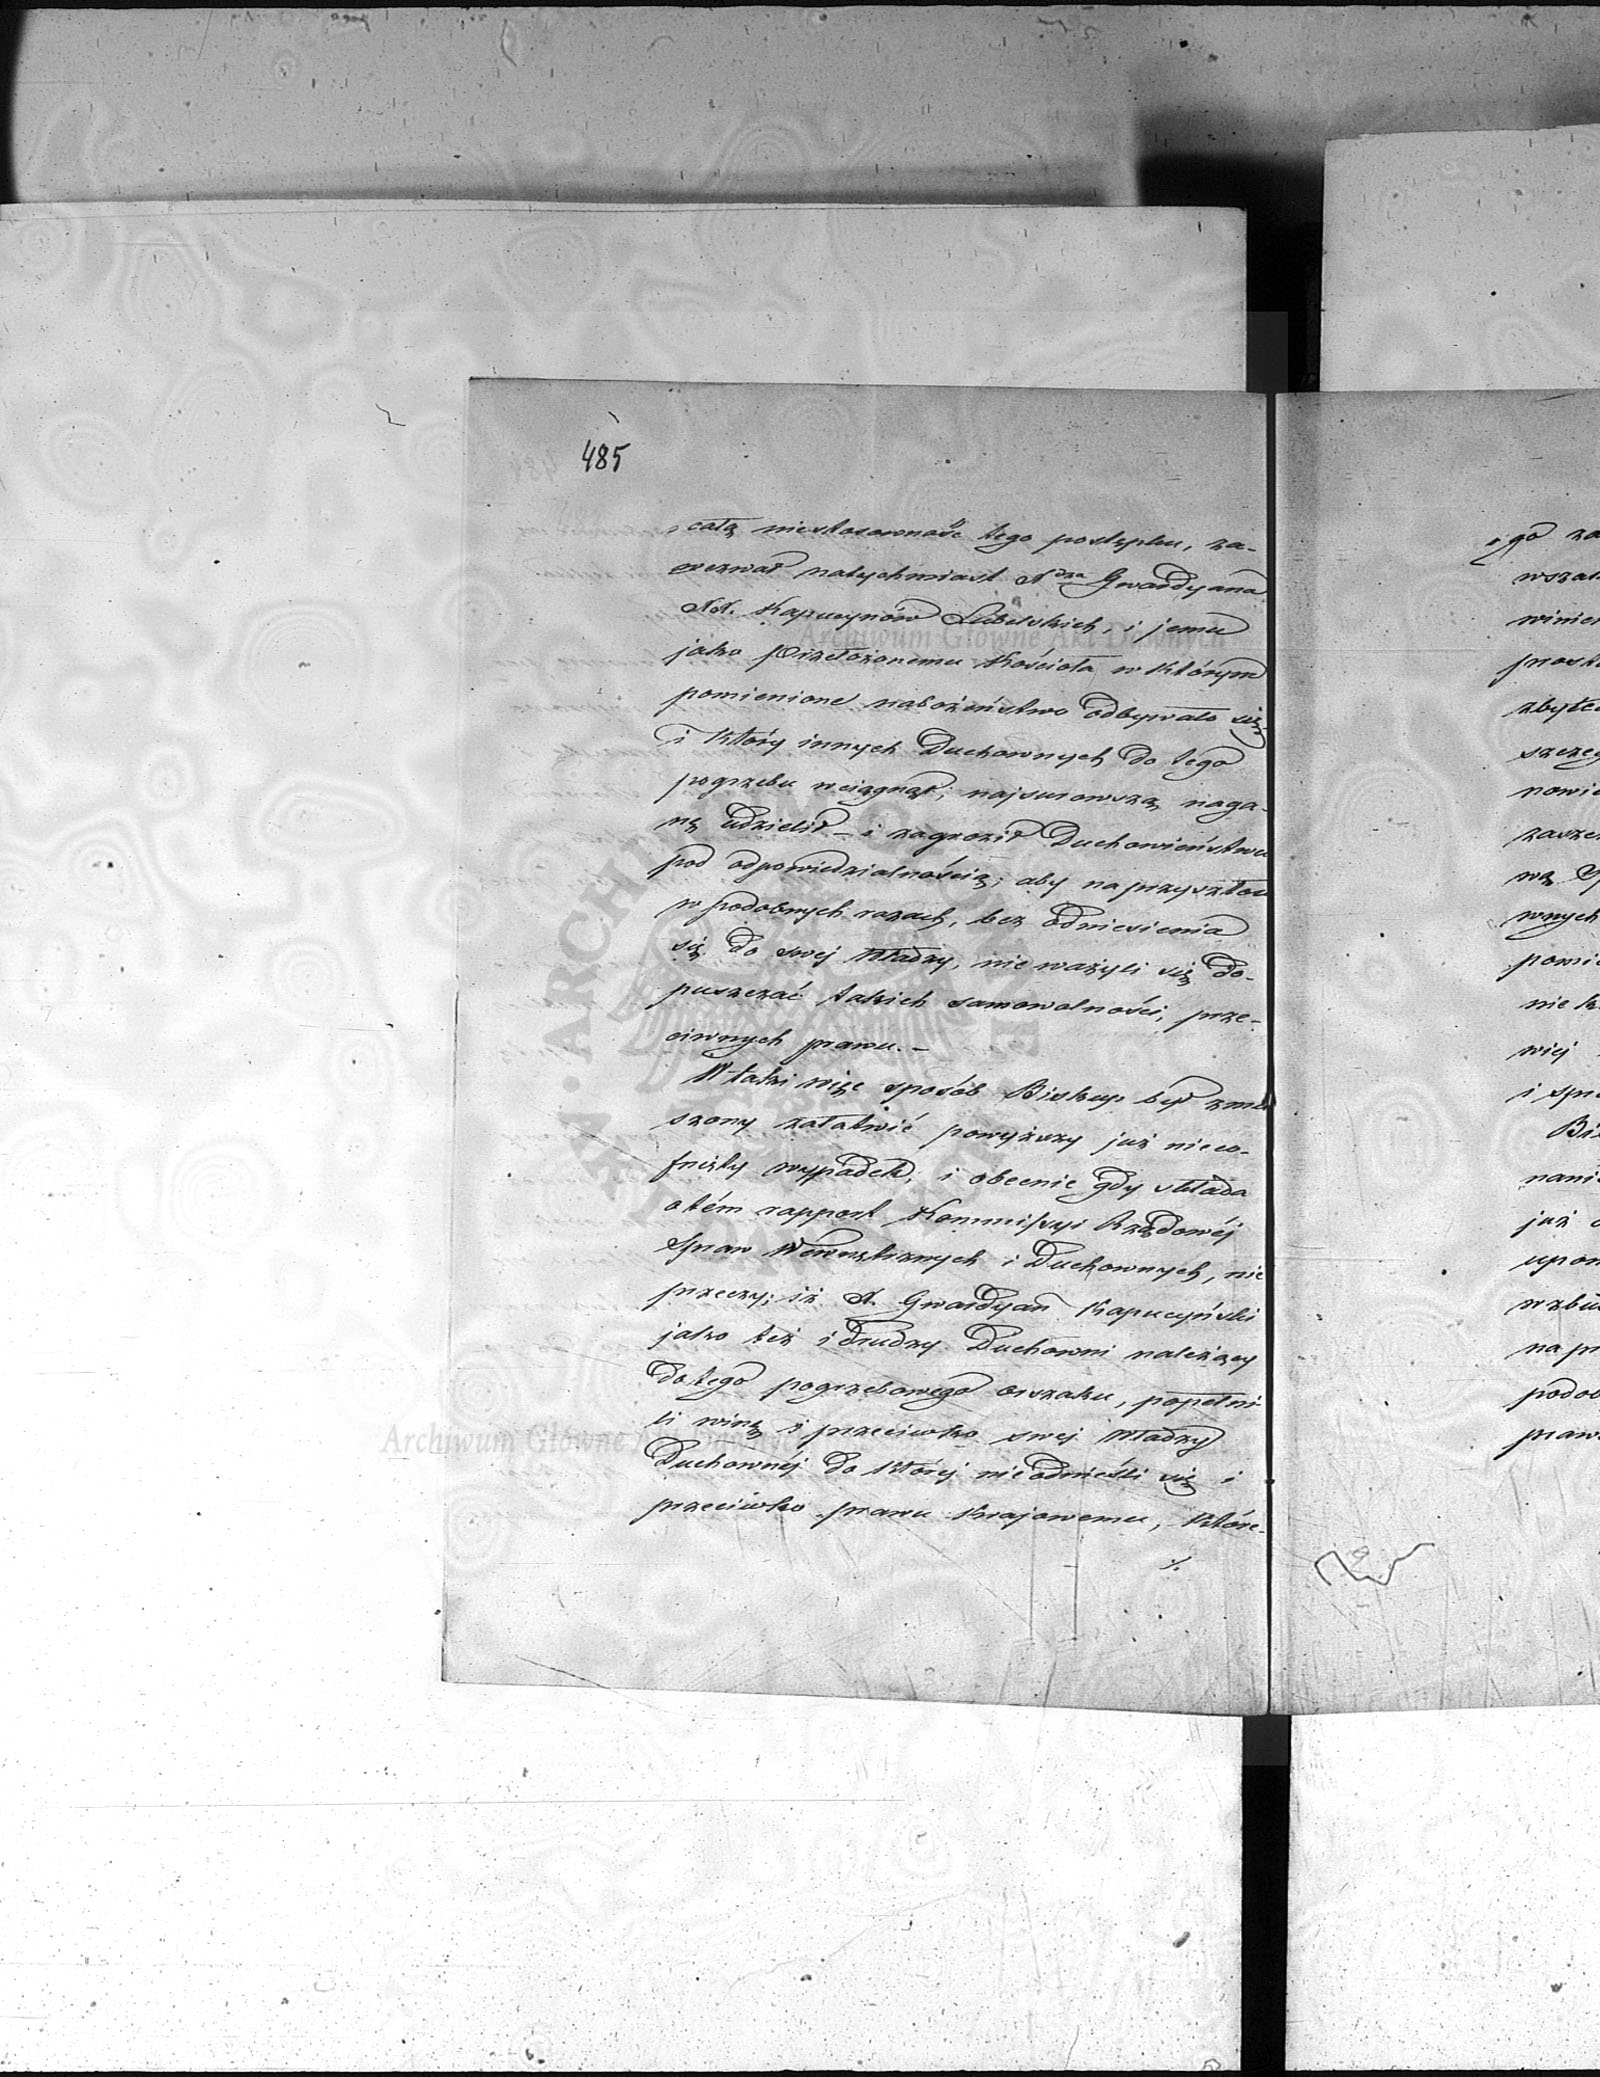 485
całą niestosowność tego postępku, za-
wezwał natychmiast Xdza Gwardyana
XX. Kapucynów Lubelskich, i jemu
jako Przełożonemu Kościoła w którym
pomienione nabożeństwo odbywało się
i który innych Duchownych do tego
pogrzebu wciągnął; najsurowszą naga-
nę udzielił – i zagroził Duchowieństwu
pod odpowiedzialnością; aby na przyszłość
w podobnych razach, bez odniesienia
się do swej Władzy, nie ważyli się do-
puszczać takich samowolności, prze-
ciwnych prawu. –
W taki więc sposób Biskup był zmu
szony załatwić powyższy już nieco-
fnięty wypadek, i obecnie gdy składa
o tém rapport Kommissyi Rządowéj
Spraw Wewnętrznych i Duchownych, nie
przeczy; iż X. Gwardyan Kapucyński
jako też i drudzy Duchowni należący
do tego pogrzebowego orszaku, popełni-
li winę i przeciwko swej Władzy
Duchownéj do której nie odnieśli się i
przeciwko prawu Krajowemu, które-
./.
go za
wszak
winien
prost
zbytec
szczeg
nowie
zasze
wą
wnych
pomie
nie k
wiej
i spr
Bi
nani
już
upom
wzbu
na pr
podob
praw
Archiwum Główne Akt Dawnych
Archiwum Główne Akt Dawnych